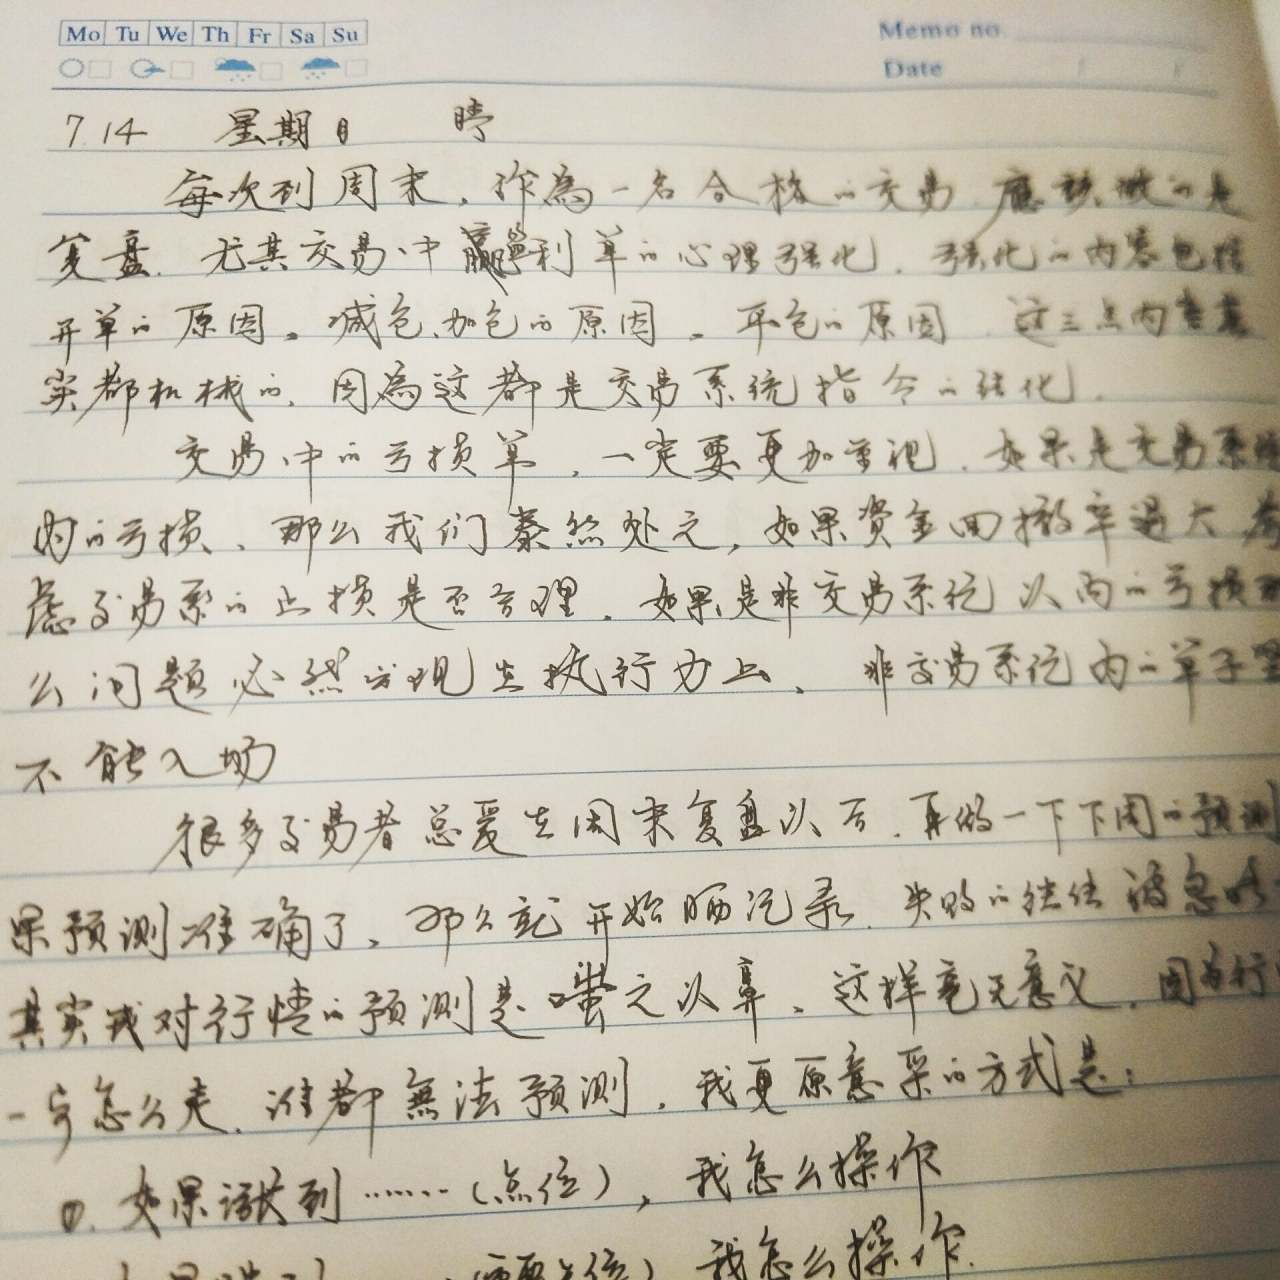 Mo Tu We Th Fr Sa Su
Memo no.
Date
7.14 星期日 晴
每次到周末，作為一名合格的交易，應该做的是
复盘．尤其交易中赢利单的心理强化．强化的内容包括
开单的原因。减仓、加仓的原因。平仓的原因．这三点内容其
实都机械的．因為这都是交易系统指令的转化．
交易中的亏损单，一定要更加重视．如果是交易系统
内的亏损、那么我们泰然处之，如果资金回撤率过大，考
虑交易系的止损是否合理．如果是非交易系统以内的亏损那
么问题必然出现在执行力上、非交易系统内的单子坚
不能入场
很多交易者总爱在周末复盘以后．再做一下下周的预测
果预测准确了、那么就开始晒记录．失败的往往
其实我对行情的预测是嗤之以鼻、这样毫无意义．因为行
一定怎么走．谁都無法预测，我更原意采的方式是：
①. 如果涨到……（点位），我怎么操作
点位）我怎么操作.